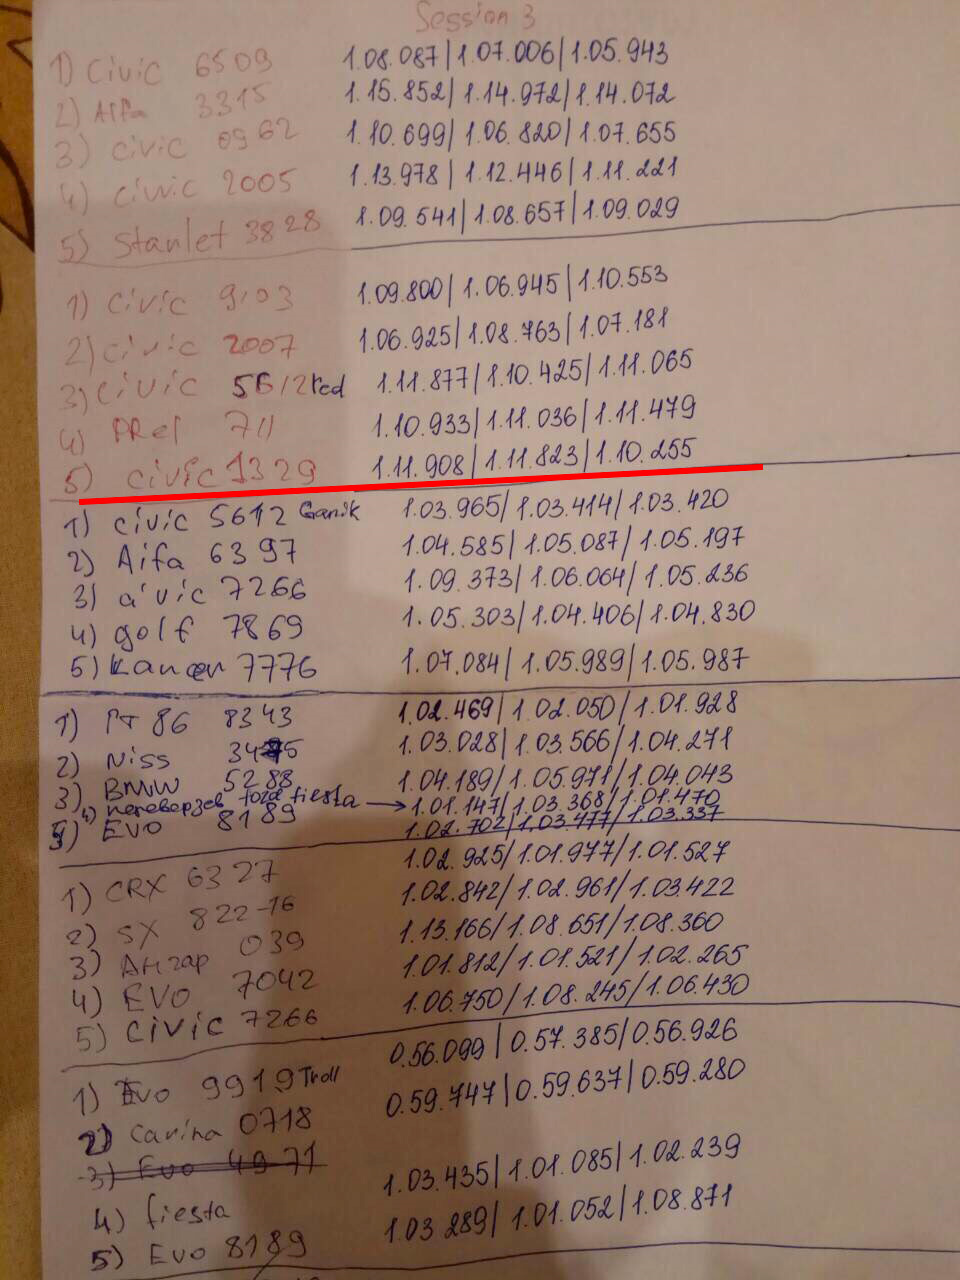 Session 3
1) Civic 6509 1.08.087 | 1.07.006 | 1.05.943
2) Alfa 3315 1.15.852 | 1.14.972 | 1.14.072
3) Civic 0962 1.10.699 | 1.06.820 | 1.07.655
4) Civic 2005 1.13.978 | 1.12.446 | 1.11.221
5) Starlet 3828 1.09.541 | 1.08.657 | 1.09.029
1) Civic 9103 1.09.800 | 1.06.945 | 1.10.553
2) Civic 2007 1.06.925 | 1.08.763 | 1.07.181
3) Civic 5612 red 1.11.877 | 1.10.425 | 1.11.065
4) PRel 711 1.10.933 | 1.11.036 | 1.11.479
5) Civic 1329 1.11.908 | 1.11.823 | 1.10.255
1) Civic 5612 Garik 1.03.965 / 1.03.414 / 1.03.420
2) Alfa 6397 1.04.585 | 1.05.087 / 1.05.197
3) Civic 7266 1.09.373 | 1.06.064 / 1.05.236
4) golf 7869 1.05.303 | 1.04.406 / 1.04.830
5) Lancer 7776 1.07.084 | 1.05.989 | 1.05.987
1) PT 86 8343 1.02.469 | 1.02.050 / 1.01.928
2) Niss 3475 1.03.028 | 1.03.566 / 1.04.271
3) BMW 5288 1.04.189 / 1.05.971 / 1.04.043
4) переверзев fiesta → 1.01.147 | 1.03.368 / 1.01.470
5) EVO 8189 1.02.702 | 1.03.477 | 1.03.337
1) CRX 6327 1.02.925 / 1.01.977 / 1.01.527
2) SX 822-16 1.02.842 / 1.02.961 / 1.03.422
3) Ангар 039 1.13.166 / 1.08.651 / 1.08.360
4) EVO 7042 1.01.812 / 1.01.521 / 1.02.265
5) CIVIC 7266 1.06.750 / 1.08.245 / 1.06.430
1) Evo 9919 Troll 0.56.099 | 0.57.385 / 0.56.926
2) Carina 0718 0.59.747 | 0.59.637 | 0.59.280
3) Evo 4971
4) fiesta 1.03.435 | 1.01.085 | 1.02.239
5) Evo 8189 1.03 289 | 1.01.052 / 1.08.871